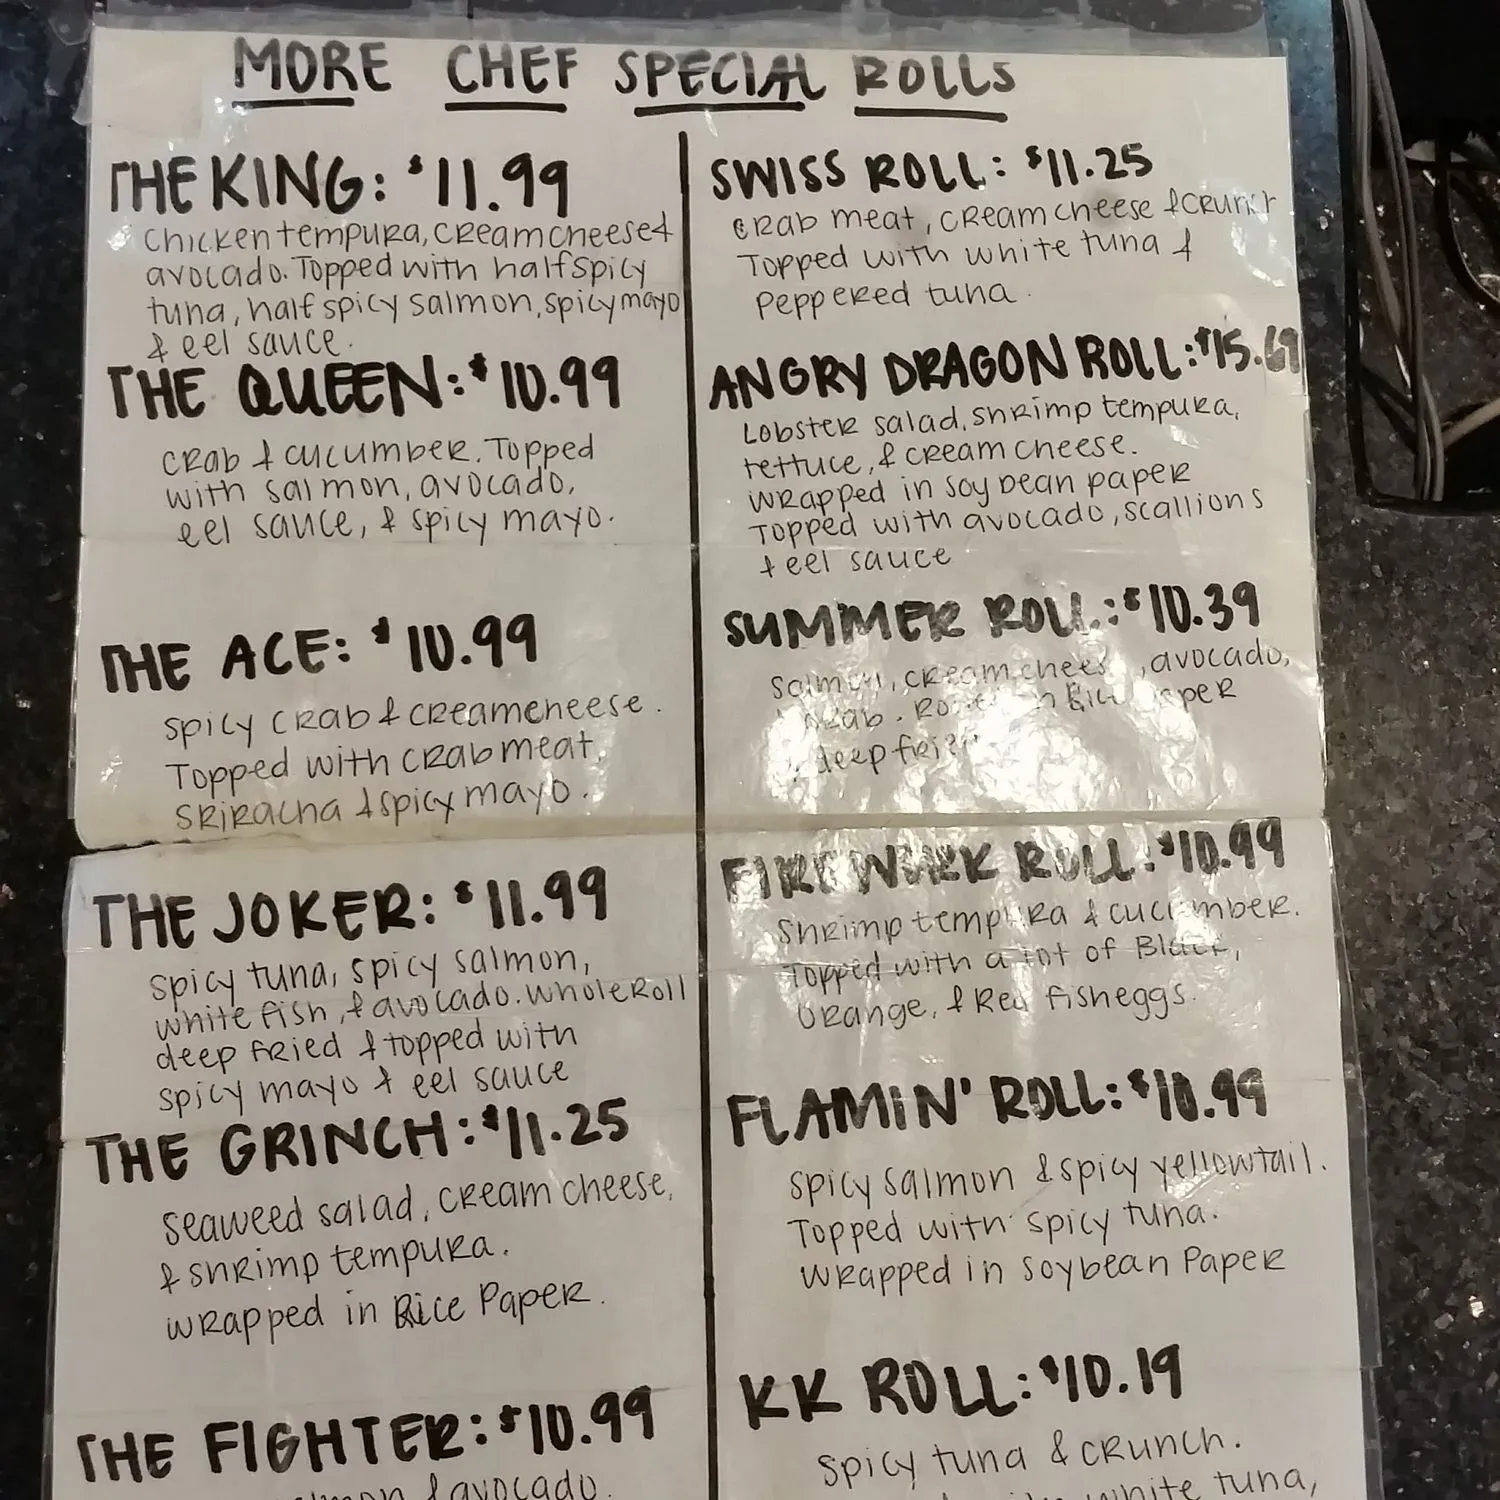 MORE CHEF SPECIAL ROLLS
THE KING: $11.99
Chicken tempura, cream cheese &
avocado. Topped with half spicy
tuna, half spicy salmon, spicy mayo
& eel sauce.
THE QUEEN: $10.99
crab & cucumber. Topped
with salmon, avocado,
eel sauce, & spicy mayo.
THE ACE: $10.99
spicy crab & cream cheese.
Topped with crab meat,
sriracha & spicy mayo.
THE JOKER: $11.99
spicy tuna, spicy salmon,
white fish, & avocado. whole roll
deep fried & topped with
spicy mayo & eel sauce
THE GRINCH: $11.25
seaweed salad, cream cheese,
& shrimp tempura.
wrapped in Rice Paper.
THE FIGHTER: $10.99
salmon & avocado.
SWISS ROLL: $11.25
crab meat, cream cheese & crunch
Topped with white tuna &
peppered tuna.
ANGRY DRAGON ROLL: $15.69
Lobster salad, shrimp tempura,
lettuce, & cream cheese.
wrapped in soy bean paper
Topped with avocado, scallions
& eel sauce
SUMMER ROLL: $10.39
salmon, cream cheese, avocado,
crab. Rolled in Rice Paper
deep fried
FIREWORK ROLL: $10.99
Shrimp tempura & cucumber.
Topped with a lot of Black,
Orange, & Red fish eggs.
FLAMIN' ROLL: $10.99
spicy salmon & spicy yellowtail.
Topped with spicy tuna.
wrapped in soybean Paper
KK ROLL: $10.19
spicy tuna & crunch.
white tuna,